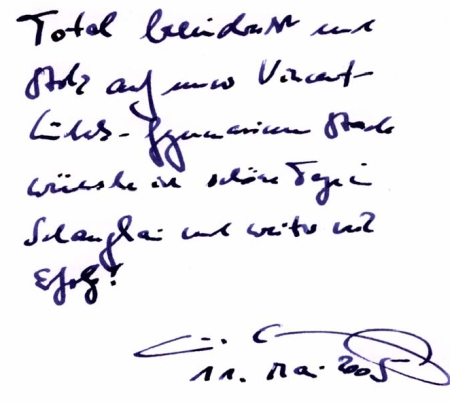 Total beeindruckt und
stolz auf unser Vincent-
Lübeck-Gymnasium Stade
wünsche ich schöne Tage in
Shanghai und weiter viel
Erfolg!
11. Mai 2005